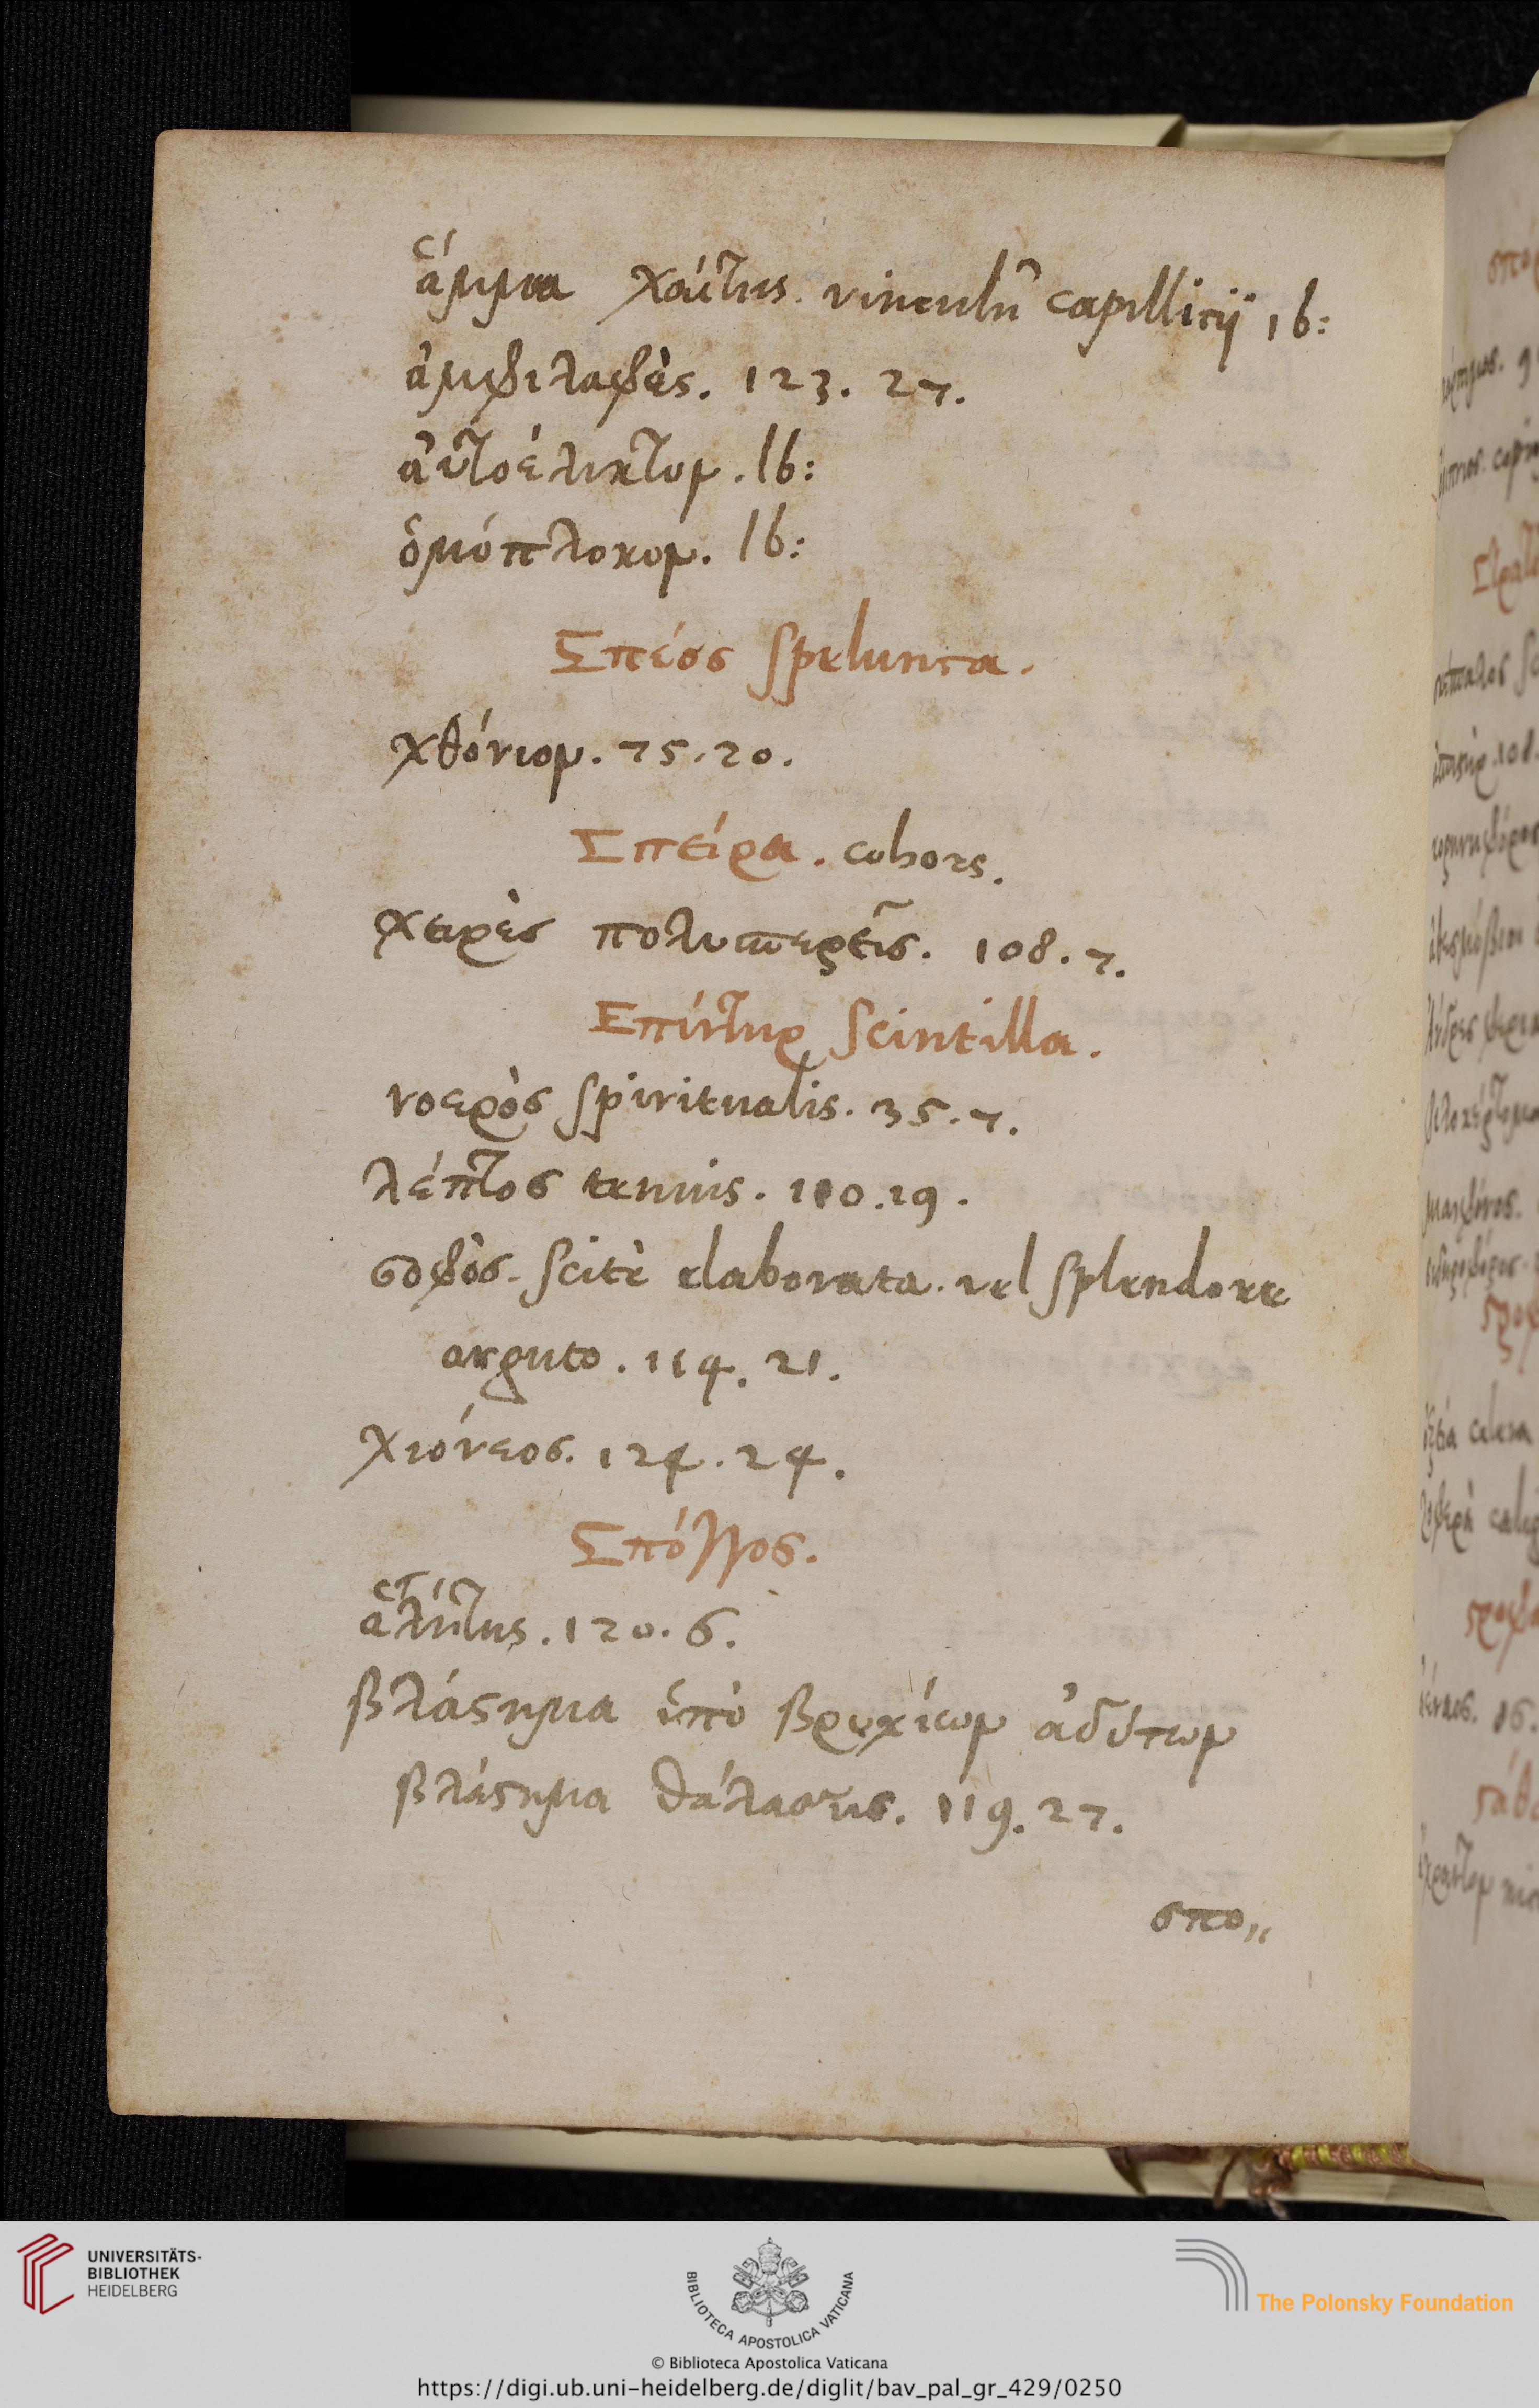 ἅμμα χαίτης. vinculū capillitij ib:
ἀμφιλαφὲς. 123. 27.
αὐτοέλικτον. Ib:
ὁμόπλοκον. Ib:
Σπέος spelunca.
χθόνιον. 75. 20.
Σπείρα. cohors.
χερὲς πολυσπερεῖς. 108. 7.
Σπίνθηρ scintilla.
νοερὸς spiritualis. 35. 7.
λέπτος tenuis. 110. 19.
σοφὸς. scitè elaborata. vel splendore
arguto. 114. 21.
χιόνεος. 124. 24.
Σπόγγος.
120. 6.
βλάστημα ὑπὸ βρυχίων ἀδύτων
βλάστημα θάλασσης. 119. 27.
σπο„
UNIVERSITÄTS-
BIBLIOTHEK
HEIDELBERG
BIBLIOTECA APOSTOLICA VATICANA
The Polonsky Foundation
© Biblioteca Apostolica Vaticana
https://digi.ub.uni-heidelberg.de/diglit/bav_pal_gr_429/0250